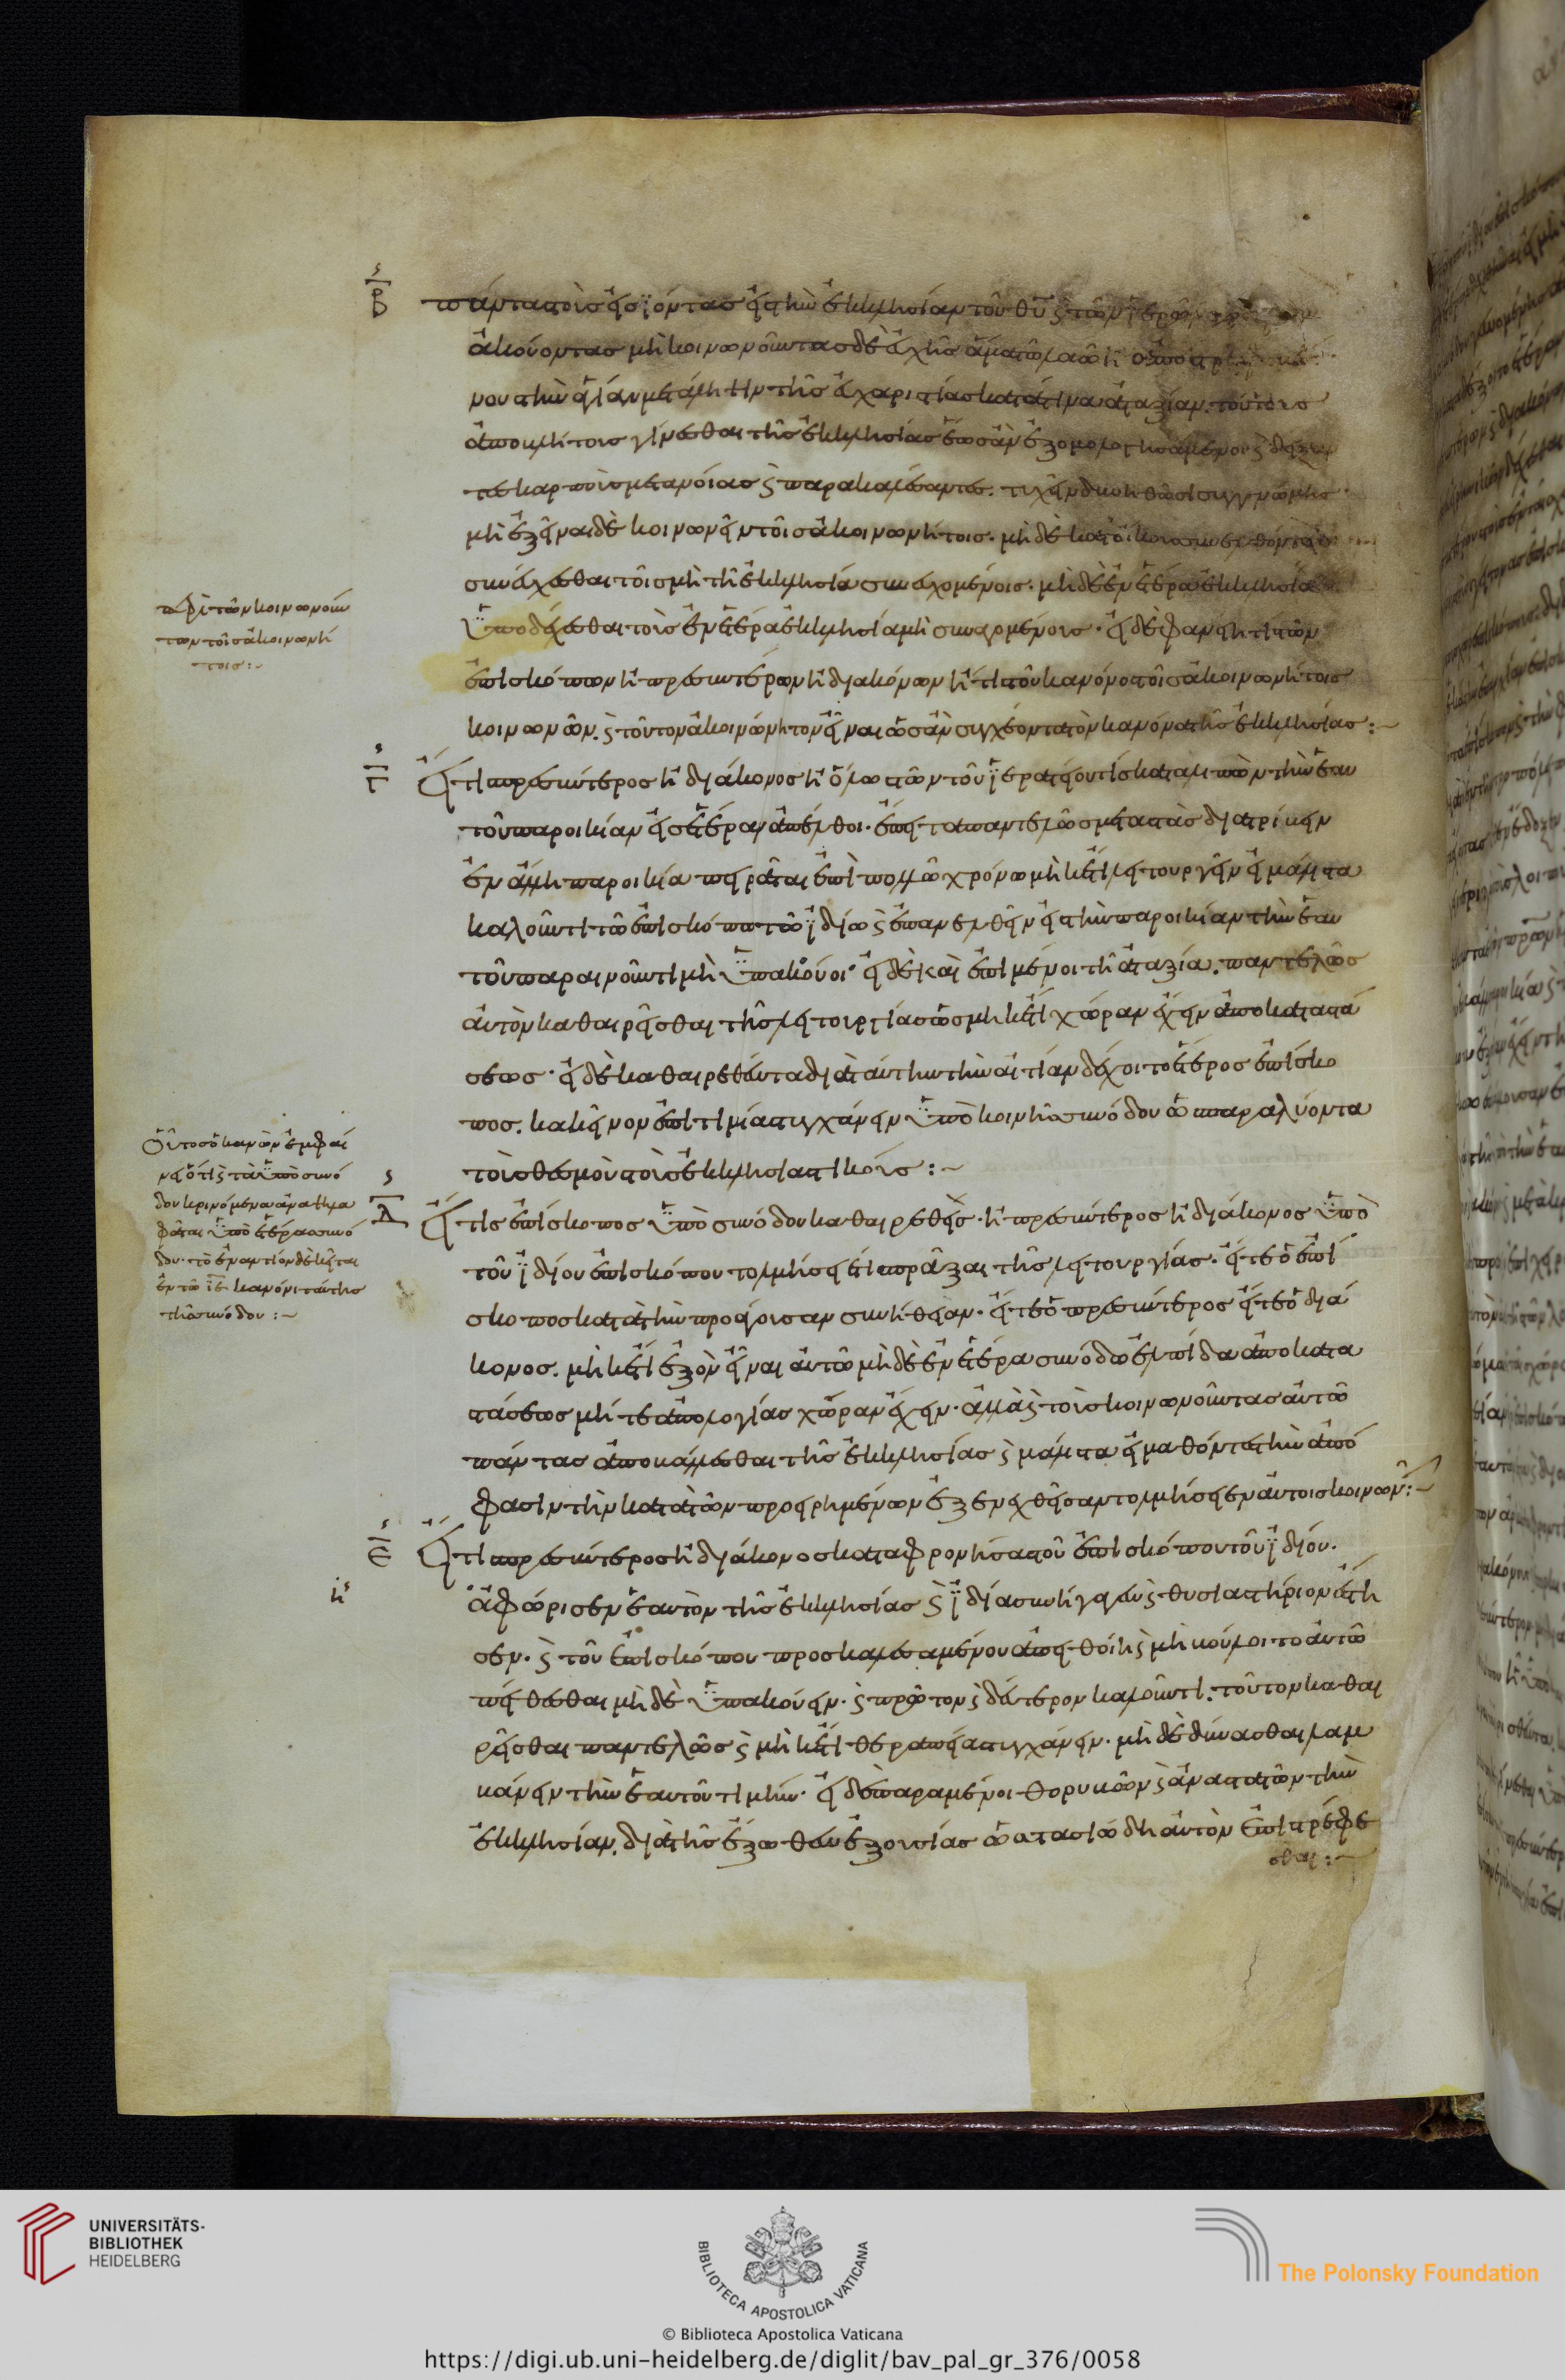 Β πάντας τοὺς εἰσϊόντας εἰς τὴν ἐκκλησίαν τοῦ θυ καὶ τῶν ϊερῶν
ἀκούοντας μὴ κοινωνοῦντας δὲ εὐχῆς ἅμα τῶ λαῶ ἢ
τὴν ἁγίαν μετάληψιν τῆς εὐχαριστίας κατά τινα ἀταξίαν. τούτους
ἀποβλήτους γίνεσθαι τῆς ἐκκλησίας ἕως ἂν ἐξομολογησάμενοι καὶ δείξαν
τες καρποὺς μετανοίας καὶ παρακαλέσαντες. τυχεῖν δυνηθῶσι συγγνώμης.
μὴ ἐξεῖναι δὲ κοινωνεῖν τοῖς ἀκοινωνήτοις. μὴ δὲ κατ' οἴκους συνελθόντας
συνεύχεσθαι τοῖς μὴ τῆ ἐκκλησία συνευχομένοις. μὴ δὲ ἐν ἑτέρα ἐκκλησία
ὑποδέχεσθαι τοὺς ἐν ἑτέρα ἐκκλησία μὴ συναγομένους. εἰ δὲ φανείη τὶς τῶν
ἐπισκόπων ἢ πρεσβυτέρων ἢ διακόνων ἤ τις τοῦ κανόνος τοῖς ἀκοινωνήτοις
κοινωνῶν. καὶ τοῦτον ἀκοινώνητον εἶναι ὡς ἂν συγχέοντα τὸν κανόνα τῆς ἐκκλησίας:~
περὶ τῶν κοινωνούν
των τοῖς ἀκοινωνή
τοις:~
Γ Εἴ τις πρεσβύτερος ἢ διάκονος ἢ ὅλως τῶν τοῦ ϊερατείου τίς καταλιπὼν τὴν ἑαυ
τοῦ παροικίαν εἰς ἑτέραν ἀπέλθοι. ἔπειτα παντελῶς μεταστὰς διατρίβειν
ἐν ἄλλη παροικία πειρᾶται ἐπὶ πολλῶ χρόνω μὴ κέτι λειτουργεῖν εἰ μάλιστα
καλοῦντι τῶ ἐπισκόπω τῶ ϊδίω καὶ ἐπανελθεῖν εἰς τὴν παροικίαν τὴν ἑαυ
τοῦ παραινοῦντι μὴ ὑπακούοι· εἰ δὲ καὶ ἐπιμένοι τῆ ἀταξία. παντελῶς
αὐτὸν καθαιρεῖσθαι τῆς λειτουργίας ὡς μὴ κέτι χώραν ἔχειν ἀποκαταστά
σεως. εἰ δὲ καθαιρεθέντα διὰ ταύτην τὴν αἰτίαν δέχοιτο ἕτερος ἐπίσκο
πος. κακεῖνον ἐπιτιμίας τυγχάνειν ὑπὸ κοινῆς συνόδου ὡς παραλύοντα
τοὺς θεσμοὺς τοὺς ἐκκλησιαστικούς:~
Οὗτος ὁ κανὼν ἐμφαί
νει ὅτι καὶ τὰ ὑπὸ συνό
δου κρινόμενα ἀναψηλα
φᾶται ὑπὸ ἑτέρας συνό
δου. τὸ ἐναντίον δὲ κεῖται
ἐν τῶ ιε κανόνι ταύτης
τῆς συνόδου:~
Δ Εἴ τις ἐπίσκοπος ὑπὸ συνόδου καθαιρεθεὶς. ἢ πρεσβύτερος ἢ διάκονος ὑπὸ
τοῦ ϊδίου ἐπισκόπου τολμήσειέ τι πρᾶξαι τῆς λειτουργίας. εἴτε ὁ ἐπί
σκοπος κατὰ τὴν προάγουσαν συνήθειαν. εἴτε ὁ πρεσβύτερος εἴτε ὁ διά
κονος. μὴ κέτι ἐξὸν εἶναι αὐτῶ μὴ δὲ ἐν ἑτέρα συνόδω ἐλπίδα ἀποκατα
στάσεως μήτε ἀπολογίας χώραν ἔχειν. ἀλλὰ καὶ τοὺς κοινωνοῦντας αὐτῶ
πάντας ἀποβάλλεσθαι τῆς ἐκκλησίας καὶ μάλιστα εἰ μαθόντες τὴν ἀπό
φασιν τὴν κατὰ τῶν προειρημένων ἐξενεχθεῖσαν τολμήσειεν αὐτοῖς κοινων:~
Ε Εἴ τις πρεσβύτερος ἢ διάκονος καταφρονήσας τοῦ ἐπισκόπου τοῦ ϊδίου.
ἀφώρισεν ἑαυτὸν τῆς ἐκκλησίας καὶ ϊδία συνήγαγεν καὶ θυσιαστήριον ἔστη
σεν. καὶ τοῦ ἐπισκόπου προσκαλεσαμένου ἀπειθοίη καὶ μὴ βούλοιτο αὐτῶ
πείθεσθαι μὴ δὲ ὑπακούειν. καὶ πρῶτον καὶ δεύτερον καλοῦντι. τοῦτον καθαι
ρεῖσθαι παντελῶς καὶ μὴ κέτι θεραπείας τυγχάνειν. μὴ δὲ δύνασθαι λαμ
βάνειν τὴν ἑαυτοῦ τιμήν. εἰ δὲ παραμένοι θορυβῶν καὶ ἀναστατῶν τὴν
ἐκκλησίαν. διὰ τῆς ἔξωθεν ἐξουσίας ὡς στασιώδη αὐτὸν ἐπιστρέφε
σθαι:~
UNIVERSITÄTS-
BIBLIOTHEK
HEIDELBERG
BIBLIOTECA APOSTOLICA VATICANA
© Biblioteca Apostolica Vaticana
The Polonsky Foundation
https://digi.ub.uni-heidelberg.de/diglit/bav_pal_gr_376/0058